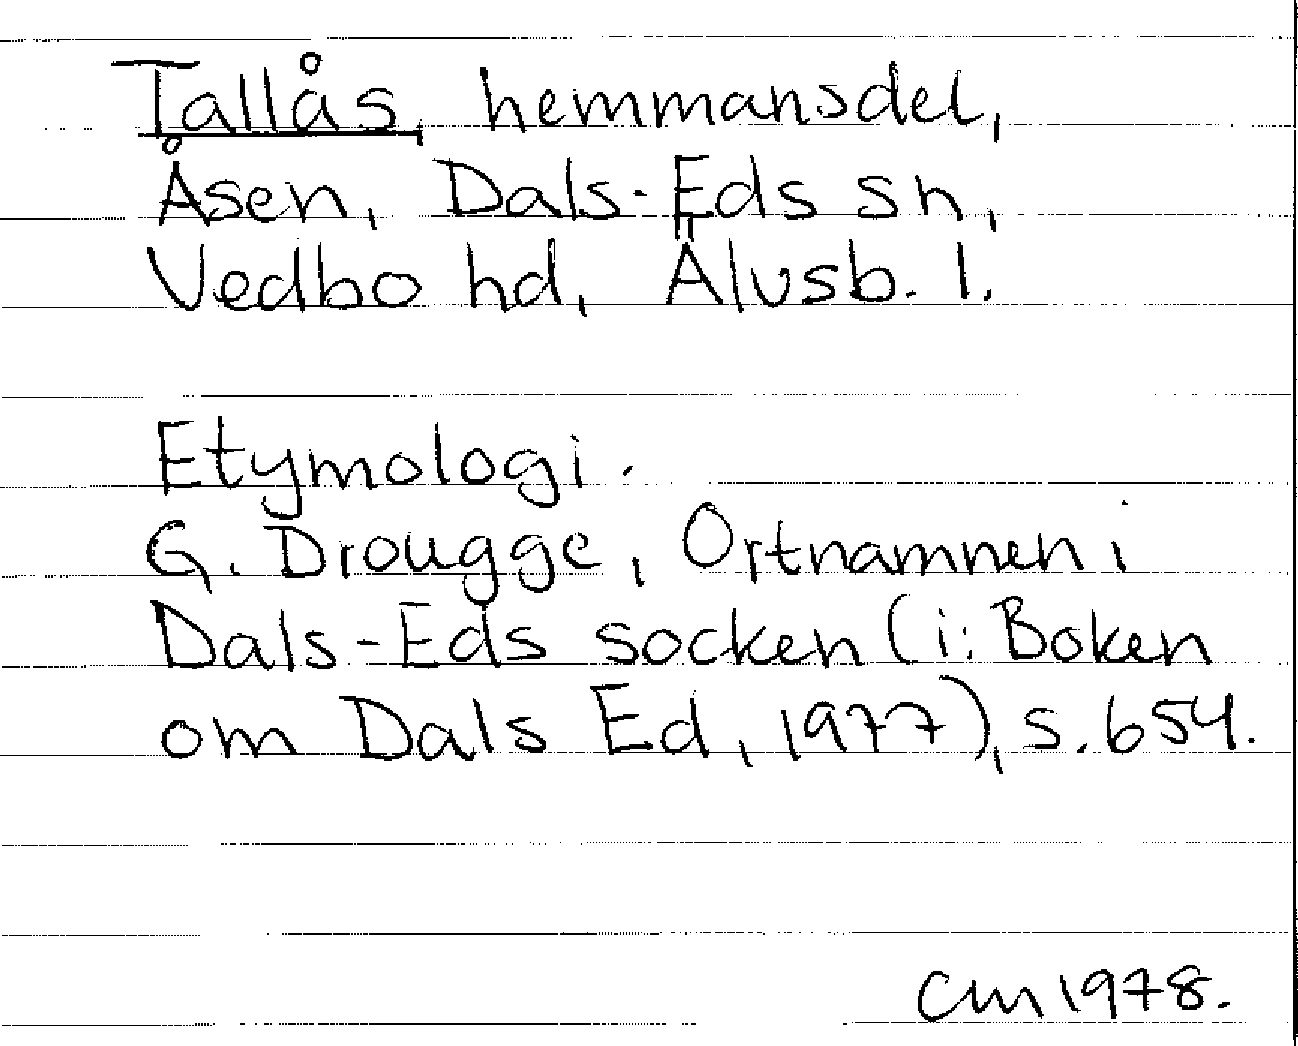 Tallås, hemmansdel,
Åsen, Dals-Eds sn,
Vedbo hd, Älvsb. l.
Etymologi.
G. Drougge, Ortnamnen i
Dals-Eds socken (i: Boken
om Dals Ed, 1977), s. 654.
CM 1978.